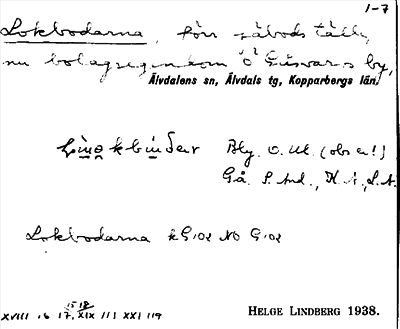 1-7
Lokbodarna, förr fäbodställe,
nu bolagsegendom ö Gåsvars by,
Älvdalens sn, Älvdals tg, Kopparbergs län.
Bly. O. M. (obs u!)
Gå. P. And., K. A., L. A.
Lokbodarna k G:02 NO G:02
15 18
XVIII 16 17, XIX 111 XXI 119
HELGE LINDBERG 1938.